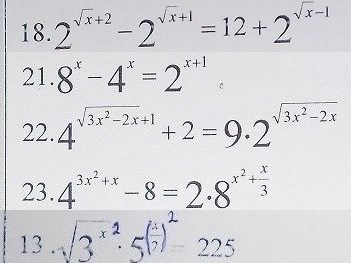 18. 2^{√x+2} − 2^{√x+1} = 12 + 2^{√x−1}
21. 8^x − 4^x = 2^{x+1}
22. 4^{√(3x²−2x)+1} + 2 = 9·2^{√(3x²−2x)}
23. 4^{3x²+x} − 8 = 2·8^{x²+x/3}
13. √3^{x^2} · 5^{(x/2)^2} = 225